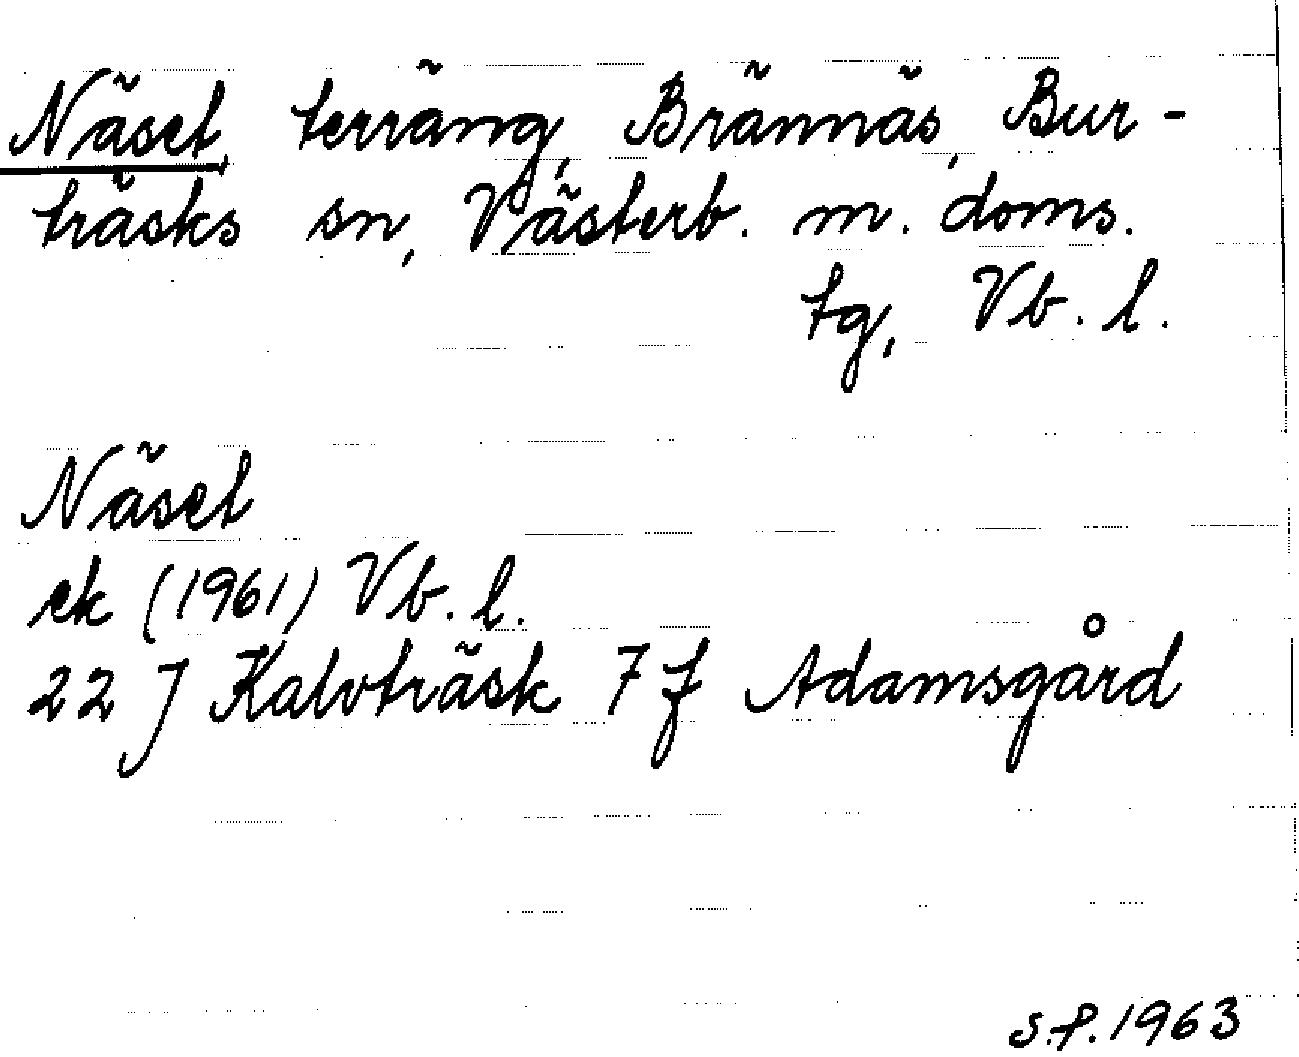 Näset, terräng, Brännäs, Bur-
träsks sn, Västerb. m. doms.
tg, Vb. l.
Näset
ek (1961) Vb. l.
22 J Kalvträsk 7 f Adamsgård
s.f. 1963